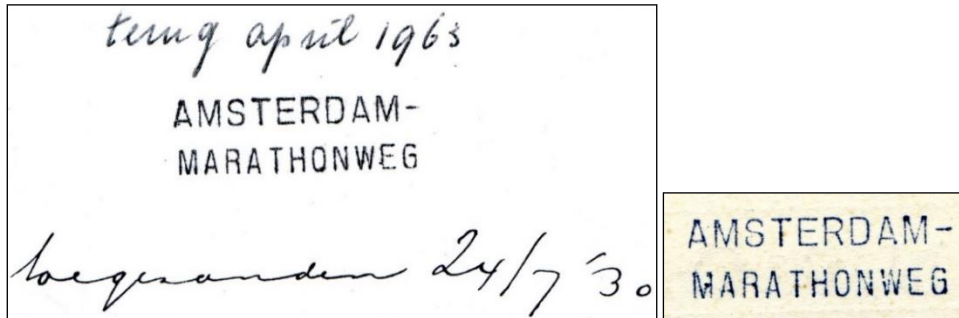 terug april 1963
AMSTERDAM-
MARATHONWEG
toegezonden 24/7 '30
AMSTERDAM-
MARATHONWEG